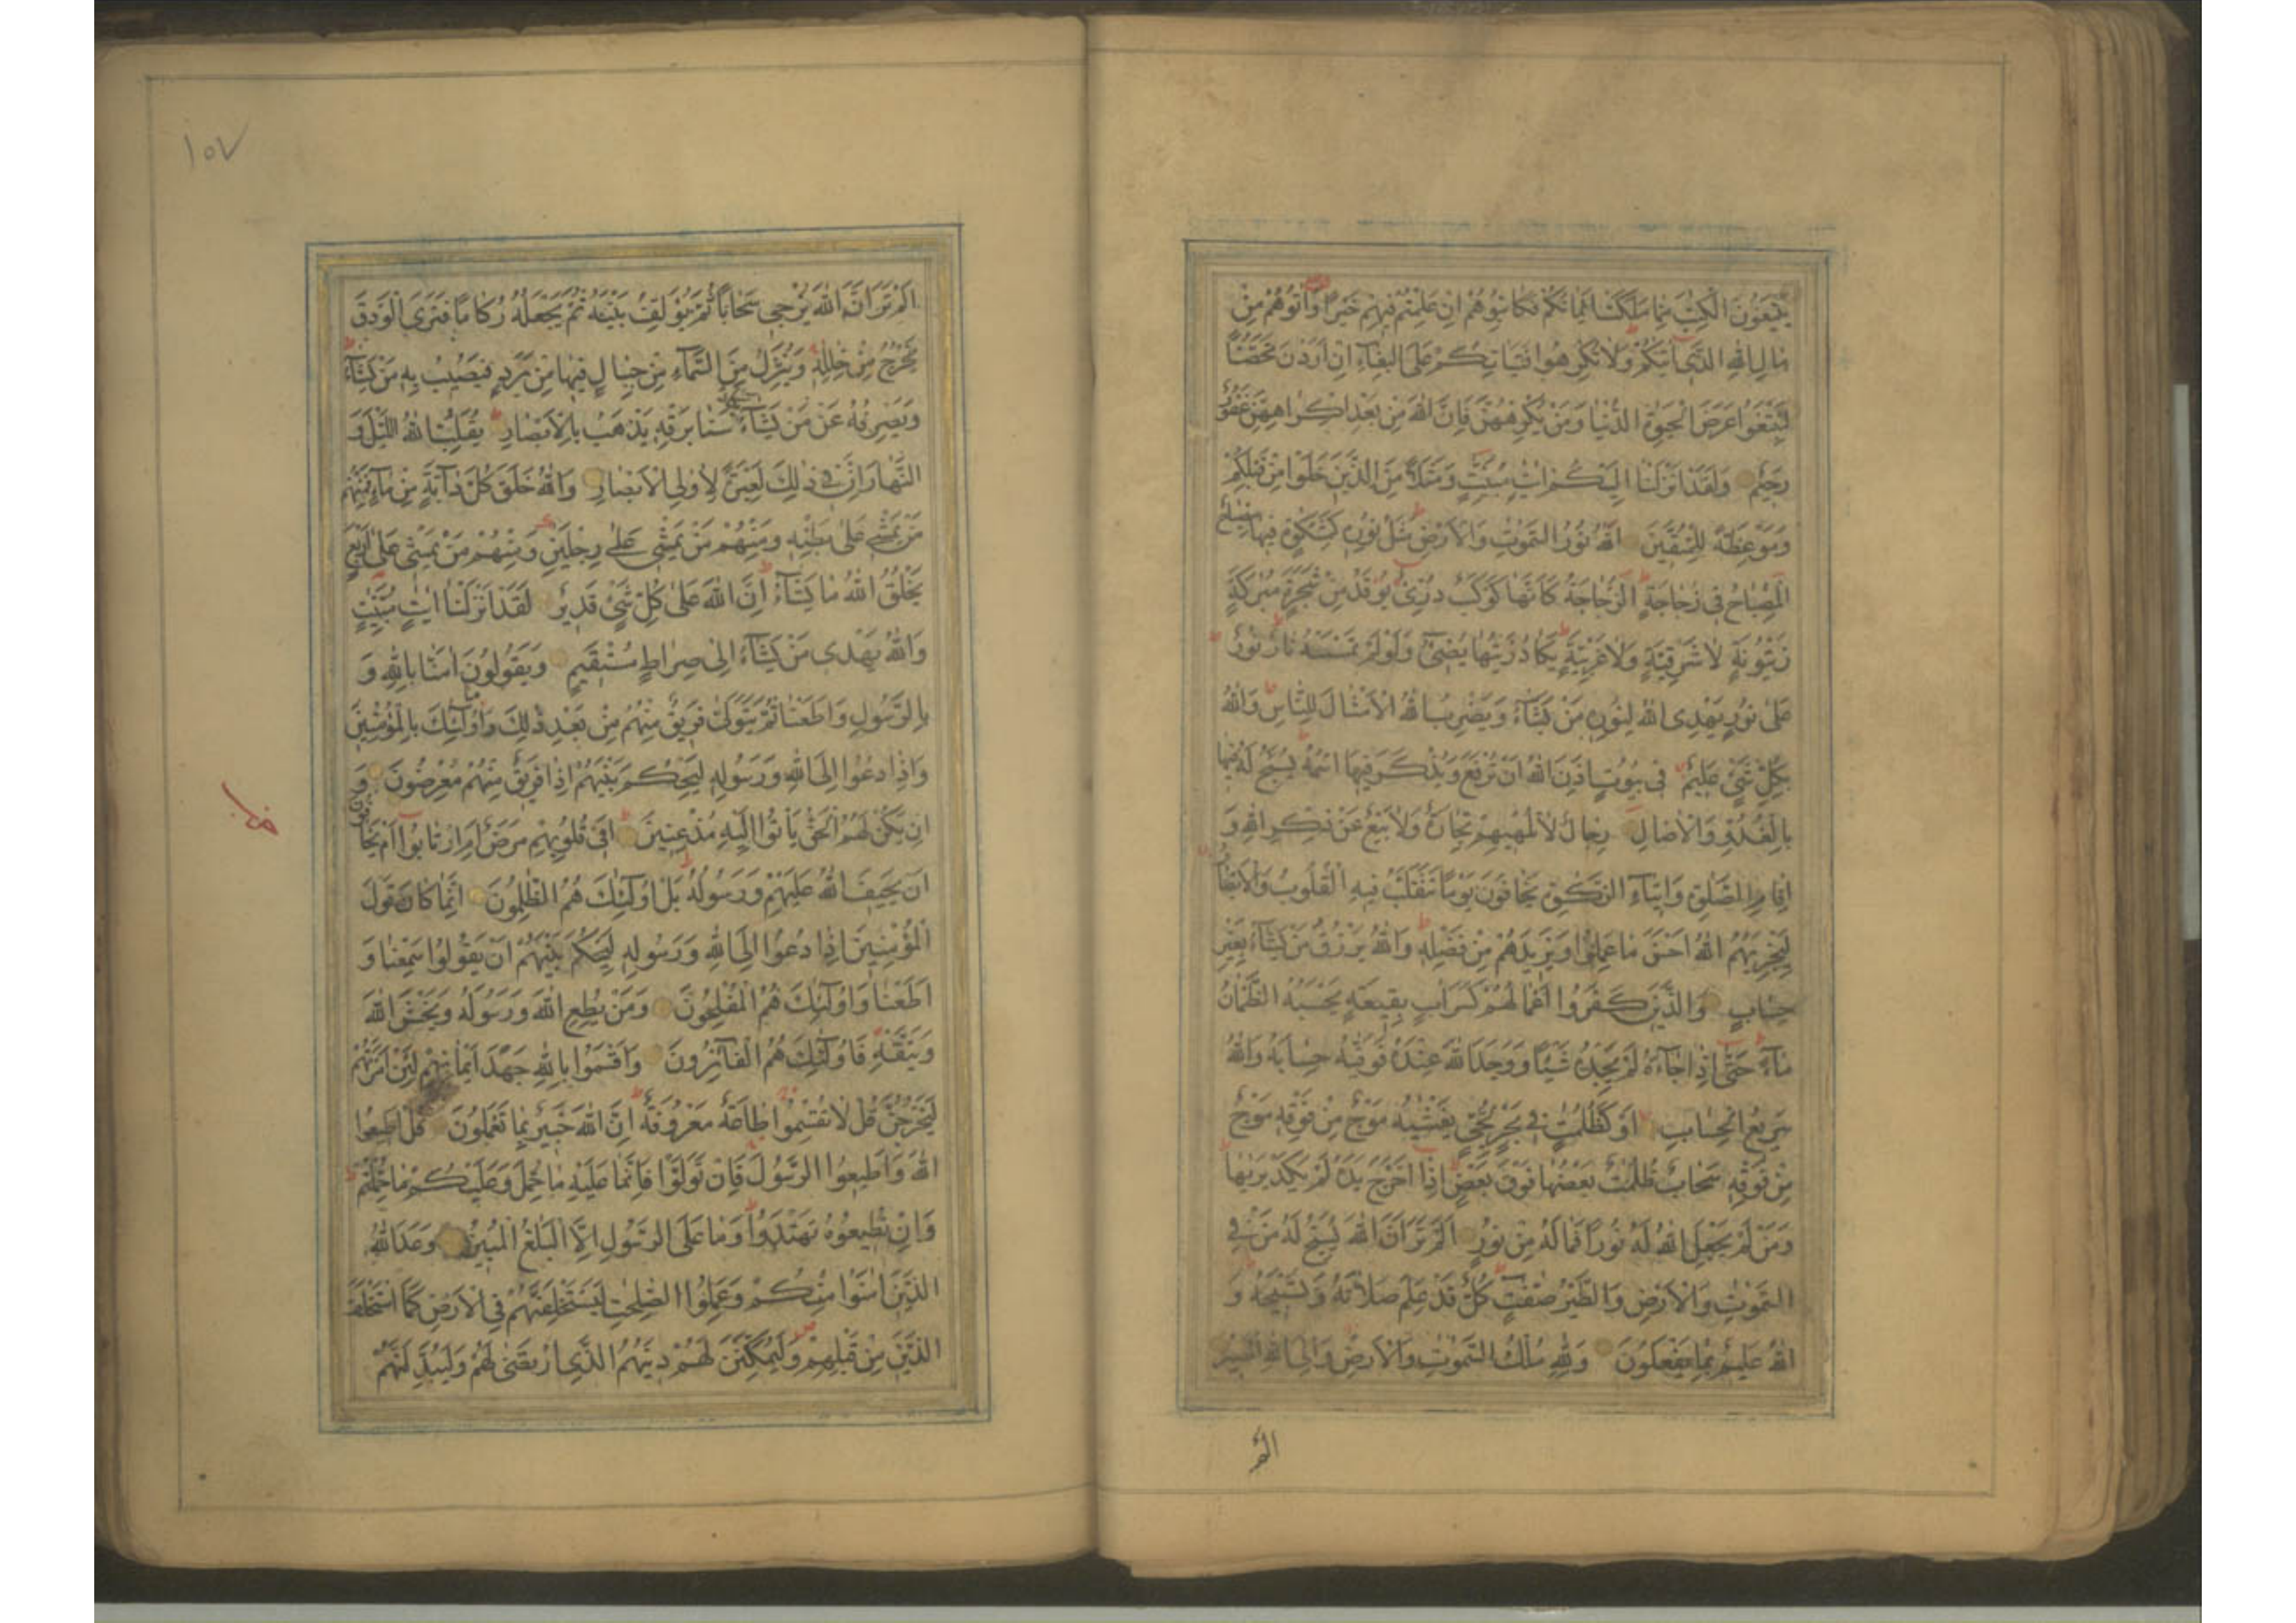 يبتغون الكتب مما ملكت ايمانكم فكاتبوهم ان علمتم فيهم خيرا واتوهم من
مال الله الذى اتيكم ولا تكرهوا فتياتكم على البغاء ان اردن تحصنا
لتبتغوا عرض الحيوة الدنيا ومن يكرههن فان الله من بعد اكراههن غفور
رحيم ولقد انزلنا اليكم ايت مبينت ومثلا من الذين خلوا من قبلكم
وموعظة للمتقين الله نور السموت والارض مثل نوره كمشكوة فيها مصباح
المصباح فى زجاجة الزجاجة كانها كوكب درى يوقد من شجرة مبركة
زيتونة لا شرقية ولا غربية يكاد زيتها يضىء ولو لم تمسسه نار نور
على نور يهدى الله لنوره من يشاء ويضرب الله الامثال للناس والله
بكل شىء عليم فى بيوت اذن الله ان ترفع ويذكر فيها اسمه يسبح له فيها
بالغدو والاصال رجال لا تلهيهم تجارة ولا بيع عن ذكر الله و
اقام الصلوة وايتاء الزكوة يخافون يوما تتقلب فيه القلوب والابصار
ليجزيهم الله احسن ما عملوا ويزيدهم من فضله والله يرزق من يشاء بغير
حساب والذين كفروا اعمالهم كسراب بقيعة يحسبه الظمان
ماء حتى اذا جاءه لم يجده شيئا ووجد الله عنده فوفيه حسابه والله
سريع الحساب او كظلمت فى بحر لجى يغشيه موج من فوقه موج
من فوقه سحاب ظلمت بعضها فوق بعض اذا اخرج يده لم يكد يريها
ومن لم يجعل الله له نورا فما له من نور الم تر ان الله يسبح له من فى
السموت والارض والطير صفت كل قد علم صلاته وتسبيحه و
الله عليم بما يفعلون ولله ملك السموت والارض والى الله المصير
الم تر
١٥٧
الم تر ان الله يزجى سحابا ثم يؤلف بينه ثم يجعله ركاما فترى الودق
يخرج من خلله وينزل من السماء من جبال فيها من برد فيصيب به من يشاء
ويصرفه عن من يشاء يكاد سنا برقه يذهب بالابصار يقلب الله الليل و
النهار ان فى ذلك لعبرة لاولى الابصار والله خلق كل دابة من ماء فمنهم
من يمشى على بطنه ومنهم من يمشى على رجلين ومنهم من يمشى على اربع
يخلق الله ما يشاء ان الله على كل شىء قدير لقد انزلنا ايت مبينت
والله يهدى من يشاء الى صراط مستقيم ويقولون امنا بالله و
بالرسول واطعنا ثم يتولى فريق منهم من بعد ذلك وما اولئك بالمؤمنين
واذا دعوا الى الله ورسوله ليحكم بينهم اذا فريق منهم معرضون و
ان يكن لهم الحق ياتوا اليه مذعنين افى قلوبهم مرض ام ارتابوا ام يخافون
ان يحيف الله عليهم ورسوله بل اولئك هم الظلمون انما كان قول
المؤمنين اذا دعوا الى الله ورسوله ليحكم بينهم ان يقولوا سمعنا و
اطعنا واولئك هم المفلحون ومن يطع الله ورسوله ويخش الله
ويتقه فاولئك هم الفائزون واقسموا بالله جهد ايمانهم لئن امرتهم
ليخرجن قل لا تقسموا طاعة معروفة ان الله خبير بما تعملون قل اطيعوا
الله واطيعوا الرسول فان تولوا فانما عليه ما حمل وعليكم ما حملتم
وان تطيعوه تهتدوا وما على الرسول الا البلغ المبين وعد الله
الذين امنوا منكم وعملوا الصلحت ليستخلفنهم فى الارض كما استخلف
الذين من قبلهم وليمكنن لهم دينهم الذى ارتضى لهم وليبدلنهم